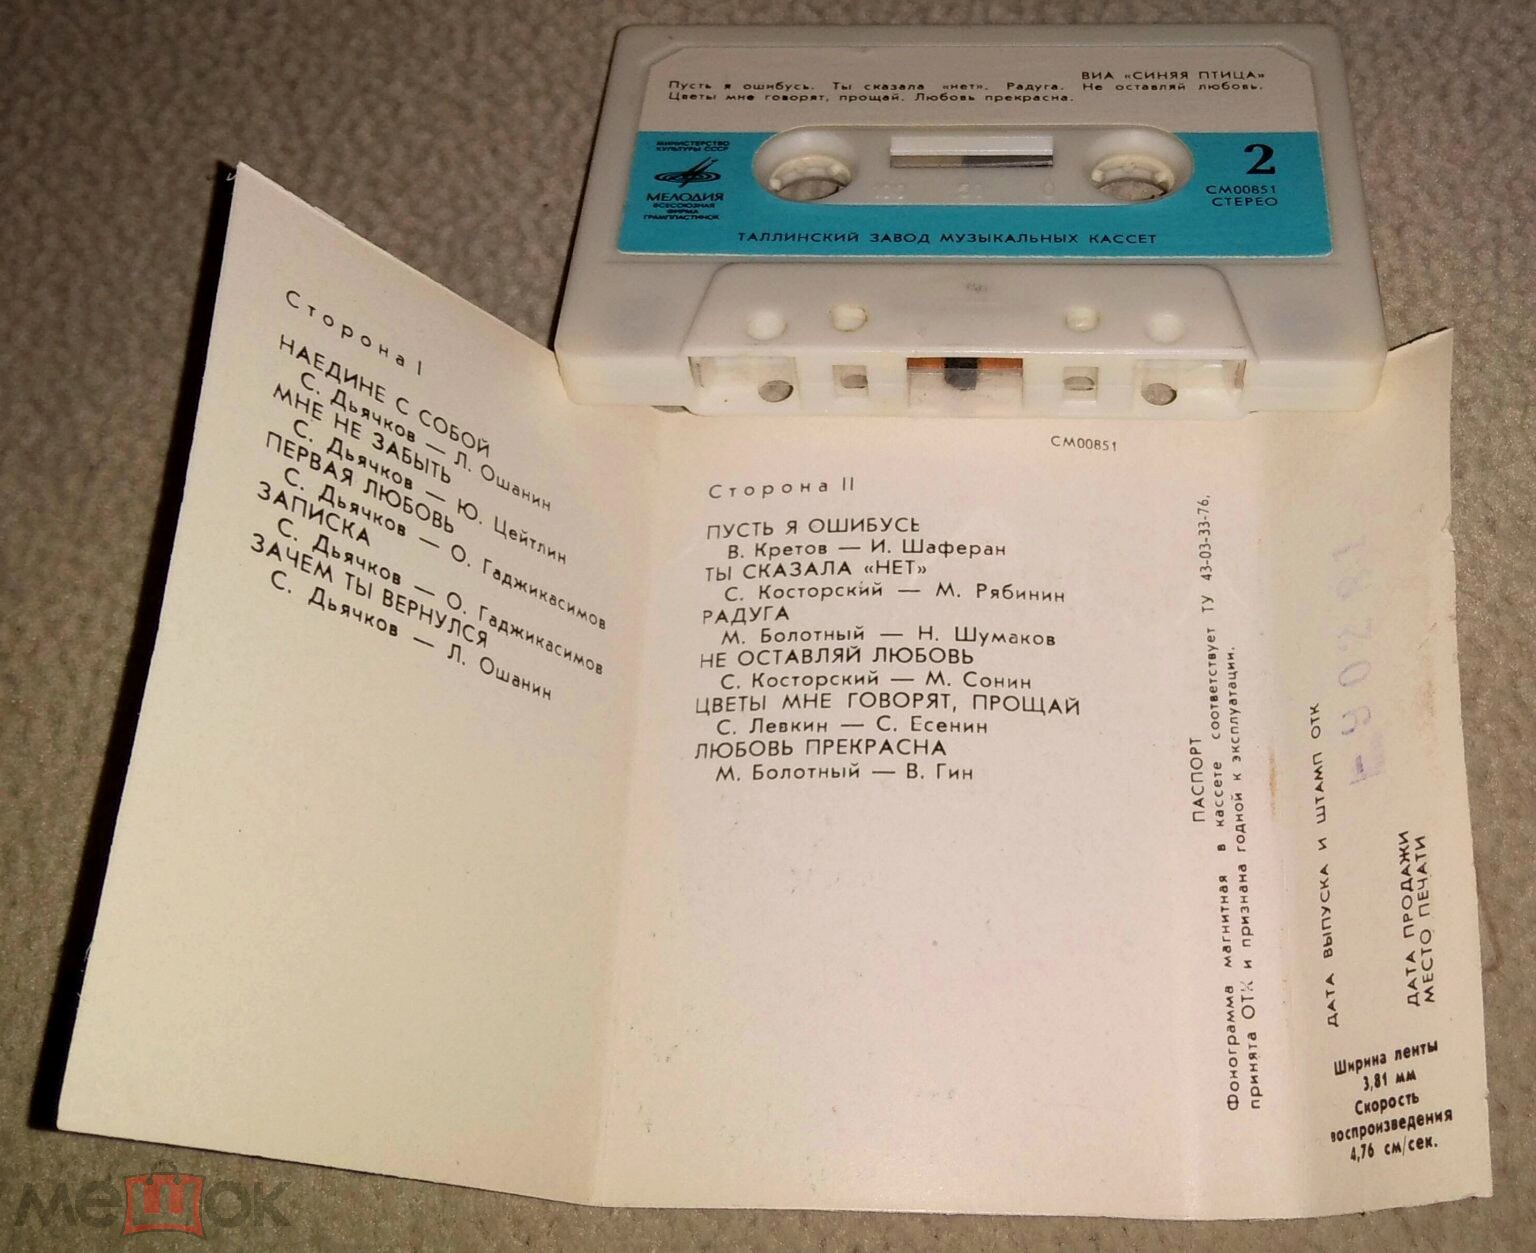 ВИА «СИНЯЯ ПТИЦА»
Пусть я ошибусь. Ты сказала «нет». Радуга. Не оставляй любовь.
Цветы мне говорят, прощай. Любовь прекрасна.
МИНИСТЕРСТВО
КУЛЬТУРЫ СССР
МЕЛОДИЯ
ВСЕСОЮЗНАЯ
ФИРМА
ГРАМПЛАСТИНОК
2
СМ00851
СТЕРЕО
ТАЛЛИНСКИЙ ЗАВОД МУЗЫКАЛЬНЫХ КАССЕТ
Сторона I
НАЕДИНЕ С СОБОЙ
С. Дьячков — Л. Ошанин
МНЕ НЕ ЗАБЫТЬ
С. Дьячков — Ю. Цейтлин
ПЕРВАЯ ЛЮБОВЬ
С. Дьячков — О. Гаджикасимов
ЗАПИСКА
С. Дьячков — О. Гаджикасимов
ЗАЧЕМ ТЫ ВЕРНУЛСЯ
С. Дьячков — Л. Ошанин
СМ00851
Сторона II
ПУСТЬ Я ОШИБУСЬ
В. Кретов — И. Шаферан
ТЫ СКАЗАЛА «НЕТ»
С. Косторский — М. Рябинин
РАДУГА
М. Болотный — Н. Шумаков
НЕ ОСТАВЛЯЙ ЛЮБОВЬ
С. Косторский — М. Сонин
ЦВЕТЫ МНЕ ГОВОРЯТ, ПРОЩАЙ
С. Левкин — С. Есенин
ЛЮБОВЬ ПРЕКРАСНА
М. Болотный — В. Гин
ПАСПОРТ
Фонограмма магнитная в кассете соответствует ТУ 43-03-33-76,
принята ОТК и признана годной к эксплуатации.
ДАТА ВЫПУСКА И ШТАМП ОТК
ДАТА ПРОДАЖИ
МЕСТО ПЕЧАТИ
Ширина ленты
3,81 мм
Скорость
воспроизведения
4,76 см/сек.
мешок